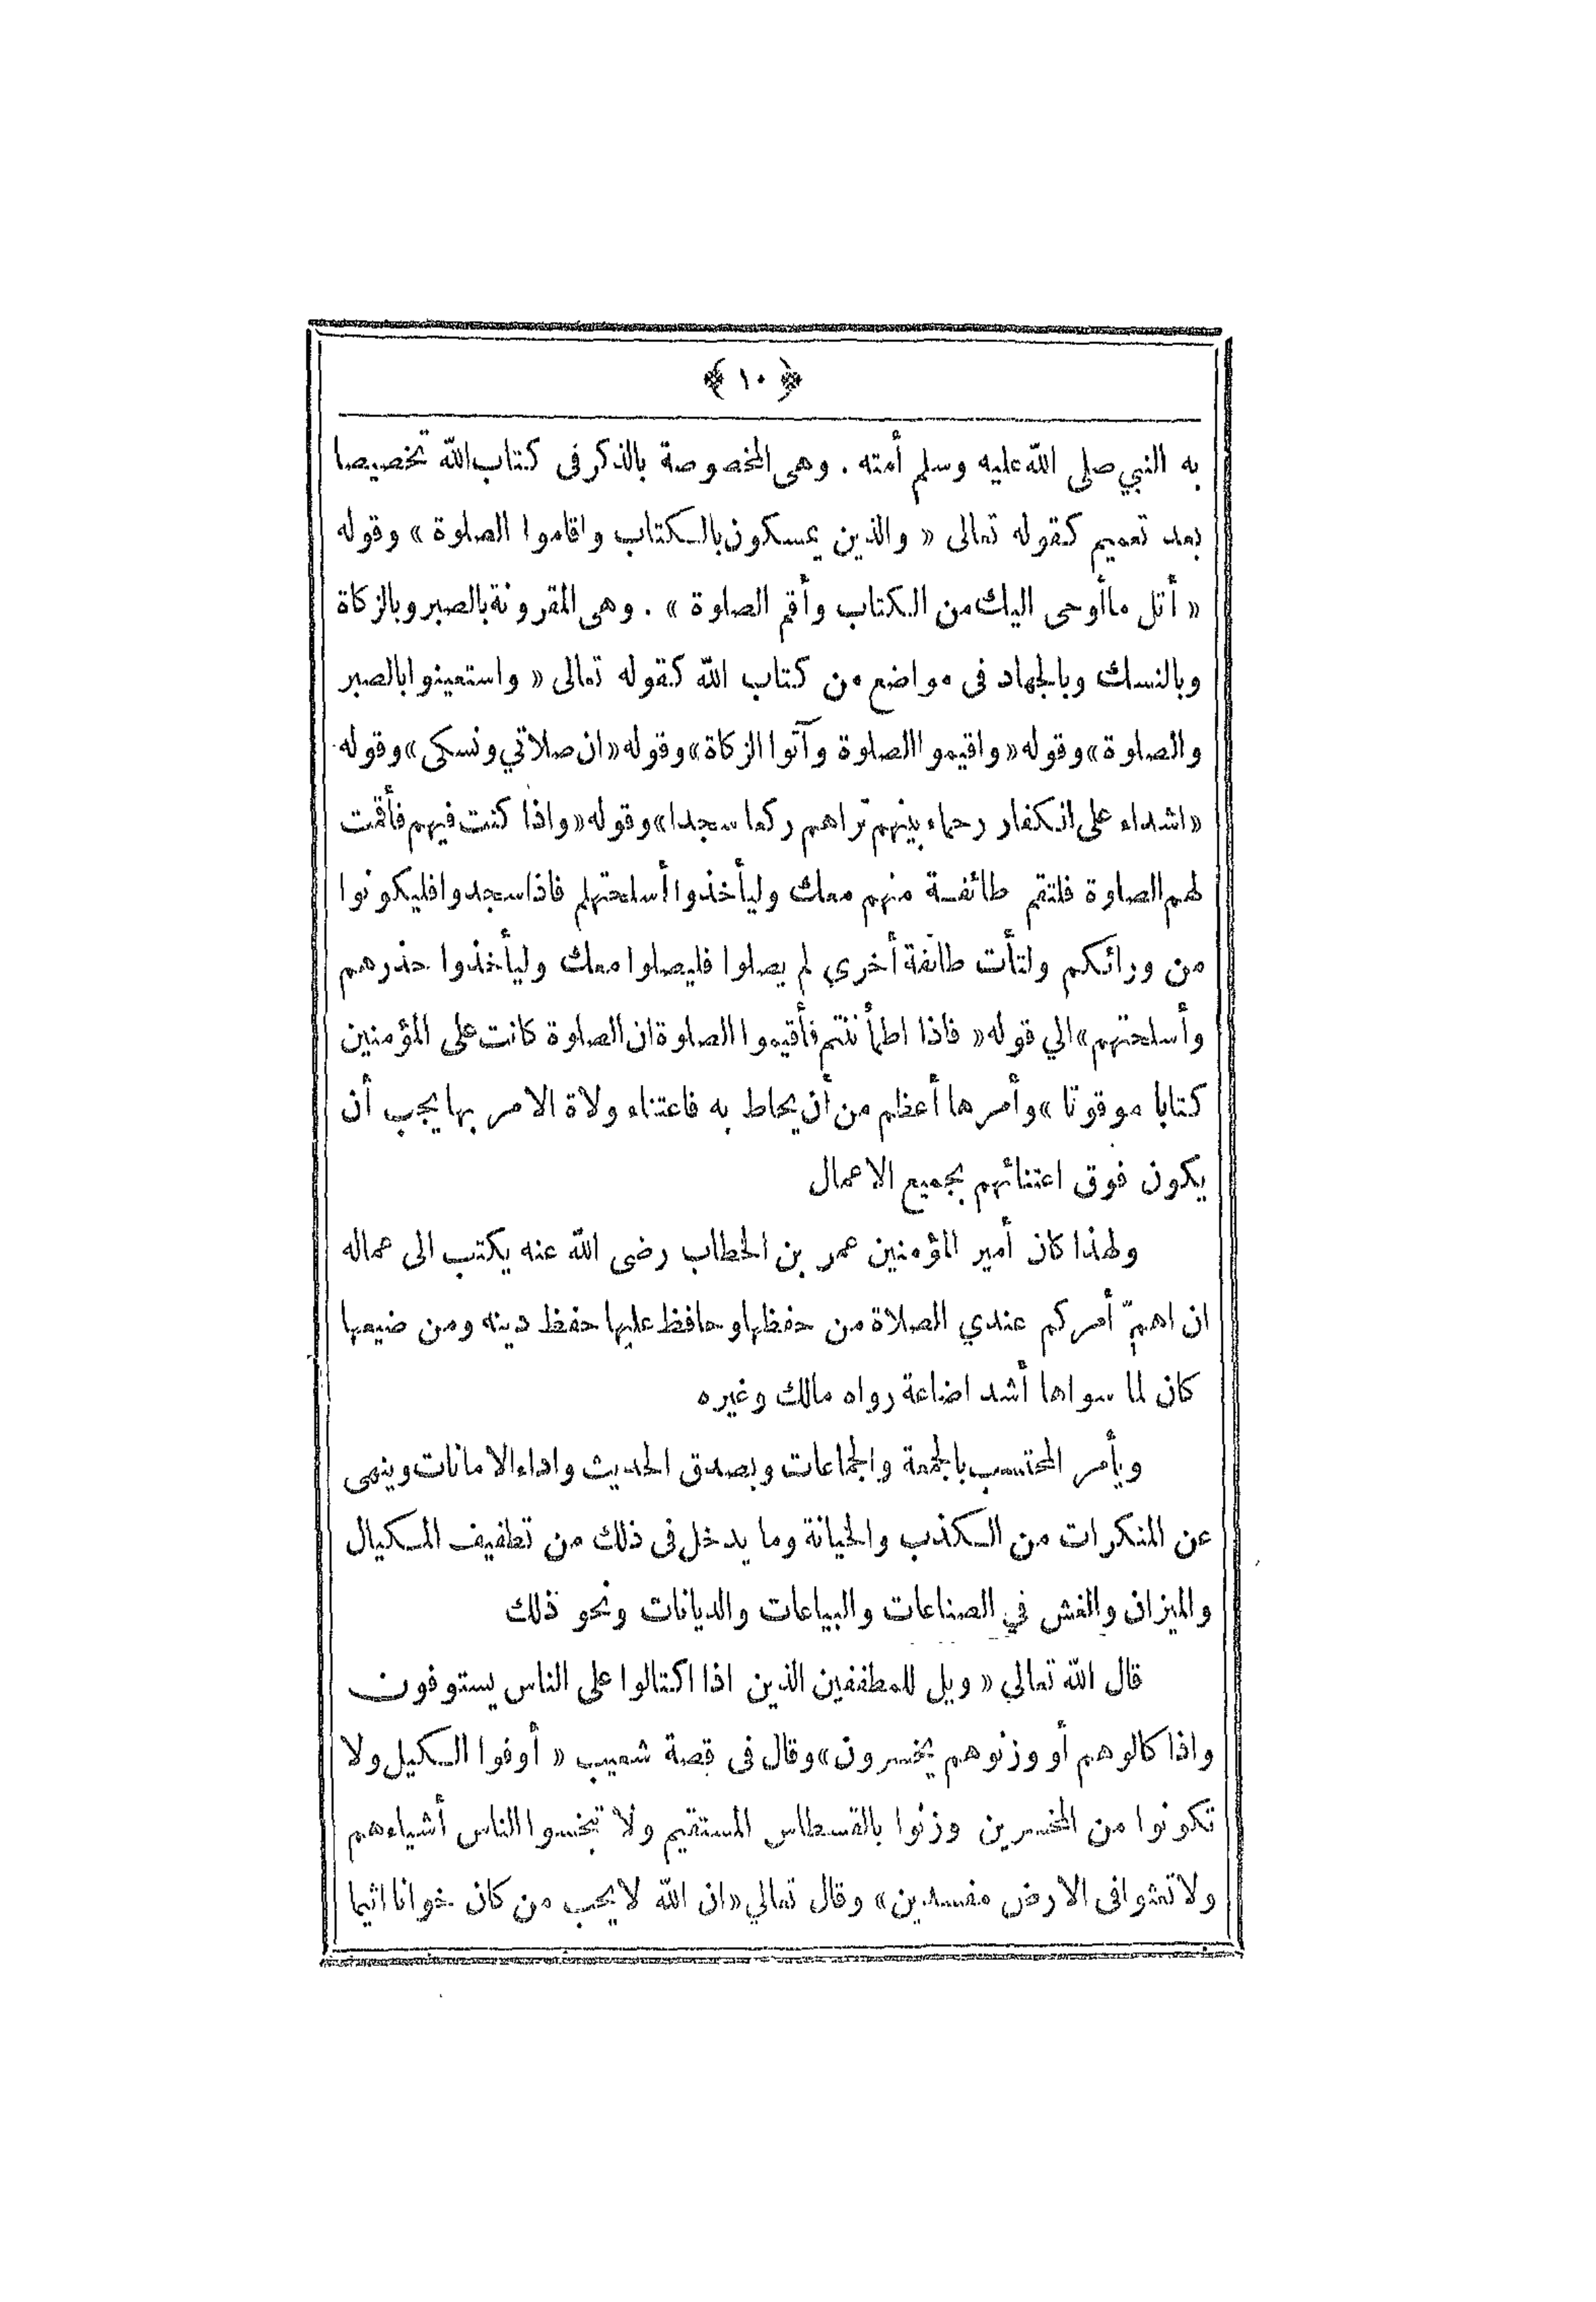 ﴿ ١٠ ﴾
به النبي صلى الله عليه وسلم أمته . وهى المخصوصة بالذكر فى كتاب الله تخصيصا
بعد تعميم كقوله تعالى « والذين يمسكون بالكتاب واقاموا الصلوة » وقوله
« أتل ماأوحى اليك من الكتاب وأقم الصلوة » . وهى المقرونة بالصبر وبالزكاة
وبالنسك وبالجهاد فى مواضع من كتاب الله كقوله تعالى « واستعينوا بالصبر
والصلوة » وقوله « واقيموا الصلوة وآتوا الزكاة » وقوله « ان صلاتي ونسكى » وقوله
« اشداء على الكفار رحماء بينهم تراهم ركعا سجدا » وقوله « واذا كنت فيهم فأقمت
لهم الصلوة فلتقم طائفة منهم معك وليأخذوا أسلحتهم فاذا سجدوا فليكونوا
من ورائكم ولتأت طائفة أخري لم يصلوا فليصلوا معك وليأخذوا حذرهم
وأسلحتهم » الي قوله « فاذا اطمأننتم فأقيموا الصلوة ان الصلوة كانت على المؤمنين
كتابا موقوتا » وأمرها أعظم من أن يحاط به فاعتناء ولاة الامر بها يجب أن
يكون فوق اعتنائهم بجميع الاعمال
ولهذا كان أمير المؤمنين عمر بن الخطاب رضى الله عنه يكتب الى عماله
ان اهمّ أمركم عندي الصلاة من حفظها وحافظ عليها حفظ دينه ومن ضيعها
كان لما سواها أشد اضاعة رواه مالك وغيره
ويأمر المحتسب بالجمعة والجماعات وبصدق الحديث واداء الامانات وينهى
عن المنكرات من الكذب والخيانة وما يدخل فى ذلك من تطفيف المكيال
والميزان والغش في الصناعات والبياعات والديانات ونحو ذلك
قال الله تعالي « ويل للمطففين الذين اذا اكتالوا على الناس يستوفون
واذا كالوهم أو وزنوهم يخسرون » وقال فى قصة شعيب « أوفوا الكيل ولا
تكونوا من المخسرين وزنوا بالقسطاس المستقيم ولا تبخسوا الناس أشياءهم
ولا تعثوا فى الارض مفسدين » وقال تعالي « ان الله لا يحب من كان خوانا اثيما